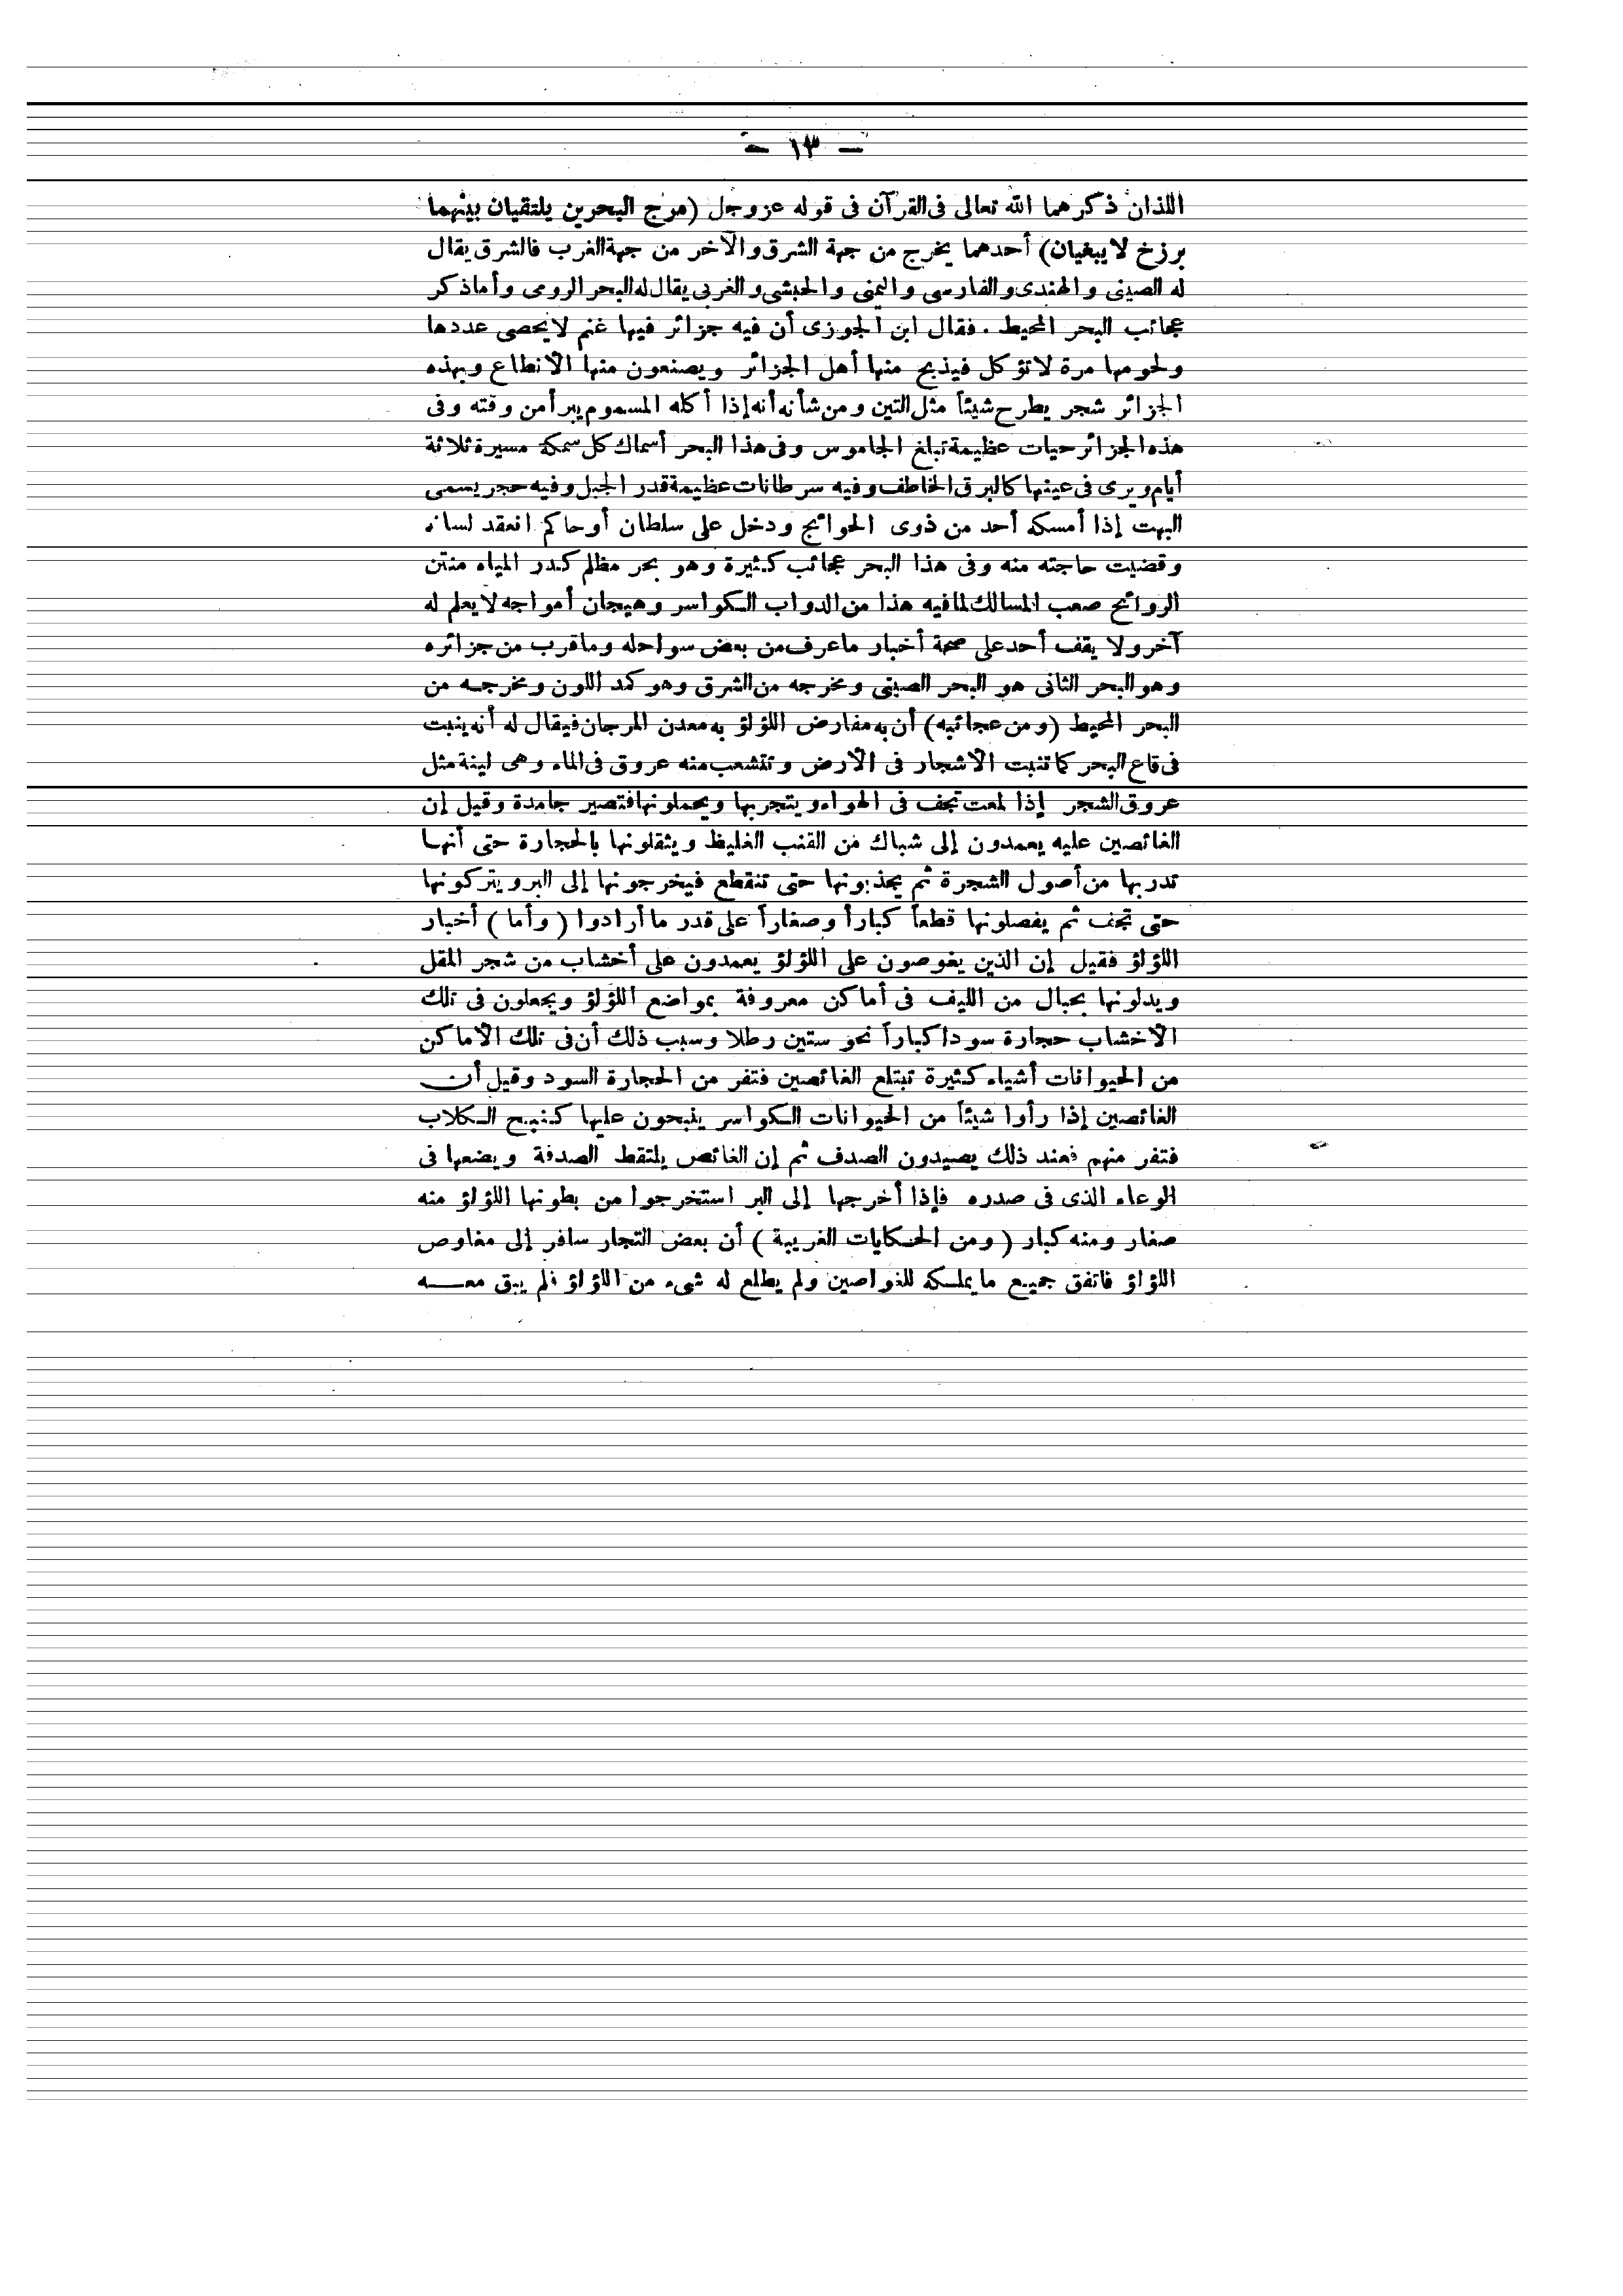 - ١٣ -
اللذان ذكرهما الله تعالى فى القرآن فى قوله عز وجل (مرج البحرين يلتقيان بينهما
برزخ لا يبغيان) أحدهما يخرج من جهة الشرق والآخر من جهة الغرب فالشرق يقال
له الصينى والهندى والفارسى واليمنى والحبشى والغربى يقال له البحر الرومى وأما ذكر
عجائب البحر المحيط . فقال ابن الجوزى أن فيه جزائر فيها غنم لا يحصى عددها
ولحومها مرة لا تؤكل فيذبح منها أهل الجزائر ويصنعون منها الانطاع وبهذه
الجزائر شجر يطرح شيئاً مثل التين ومن شأنه أنه إذا أكله المسموم يبرأ من وقته وفى
هذه الجزائر حيات عظيمة تبلغ الجاموس وفى هذا البحر أسماك كل سمكة مسيرة ثلاثة
أيام ويرى فى عينها كالبرق الخاطف وفيه سرطانات عظيمة قدر الجبل وفيه حجر يسمى
البهت إذا أمسكه أحد من ذوى الحوائج ودخل على سلطان أو حاكم انعقد لسانه
وقضيت حاجته منه وفى هذا البحر عجائب كثيرة وهو بحر مظلم كدر المياه منتن
الروائح صعب المسالك لما فيه هذا من الدواب الكواسر وهيجان أمواجه لا يعلم له
آخر ولا يقف أحد على صحة أخبار ما عرف من بعض سواحله وما قرب من جزائره
وهو البحر الثانى هو البحر الصينى ومخرجه من الشرق وهو كمد اللون ومخرجه من
البحر المحيط (ومن عجائبه) أن به مفارض اللؤلؤ به معدن المرجان فيقال له أنه ينبت
فى قاع البحر كما تنبت الاشجار فى الارض وتتشعب منه عروق فى الماء وهى لينة مثل
عروق الشجر إذا لمعت تجف فى الهواء ويتجر بها ويحملونها فتصير جامدة وقيل إن
الغائصين عليه يعمدون إلى شباك من القنب الغليظ ويثقلونها بالحجارة حتى أنها
تدر بها من أصول الشجرة ثم يجذبونها حتى تنقطع فيخرجونها إلى البر ويتركونها
حتى تجف ثم يفصلونها قطعاً كباراً وصغاراً على قدر ما أرادوا ( وأما ) أخبار
اللؤلؤ فقيل إن الذين يغوصون على اللؤلؤ يعمدون على أخشاب من شجر المقل
ويدلونها بحبال من الليف فى أماكن معروفة بمواضع اللؤلؤ ويجعلون فى تلك
الاخشاب حجارة سودا كباراً نحو ستين رطلا وسبب ذلك أن فى تلك الاماكن
من الحيوانات أشياء كثيرة تبتلع الغائصين فتفر من الحجارة السود وقيل أن
الغائصين إذا رأوا شيئاً من الحيوانات الكواسر ينبحون عليها كنبيح الكلاب
فتفر منهم فعند ذلك يصيدون الصدف ثم إن الغائص يلتقط الصدفة ويضعها فى
الوعاء الذى فى صدره فإذا أخرجها إلى البر استخرجوا من بطونها اللؤلؤ منه
صغار ومنه كبار ( ومن الحكايات الغريبة ) أن بعض التجار سافر إلى مغاوص
اللؤلؤ فاتفق جميع ما يملكه للغواصين ولم يطلع له شىء من اللؤلؤ فلم يبق معه